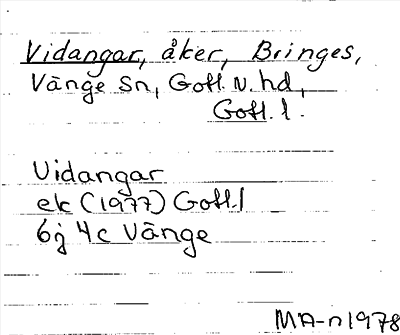 Vidangar, åker, Bringes,
Vänge sn, Gotl. N. hd,
Gotl. l.
Vidangar
ek (1977) Gotl. l
6j 4c Vänge
MA-n 1978